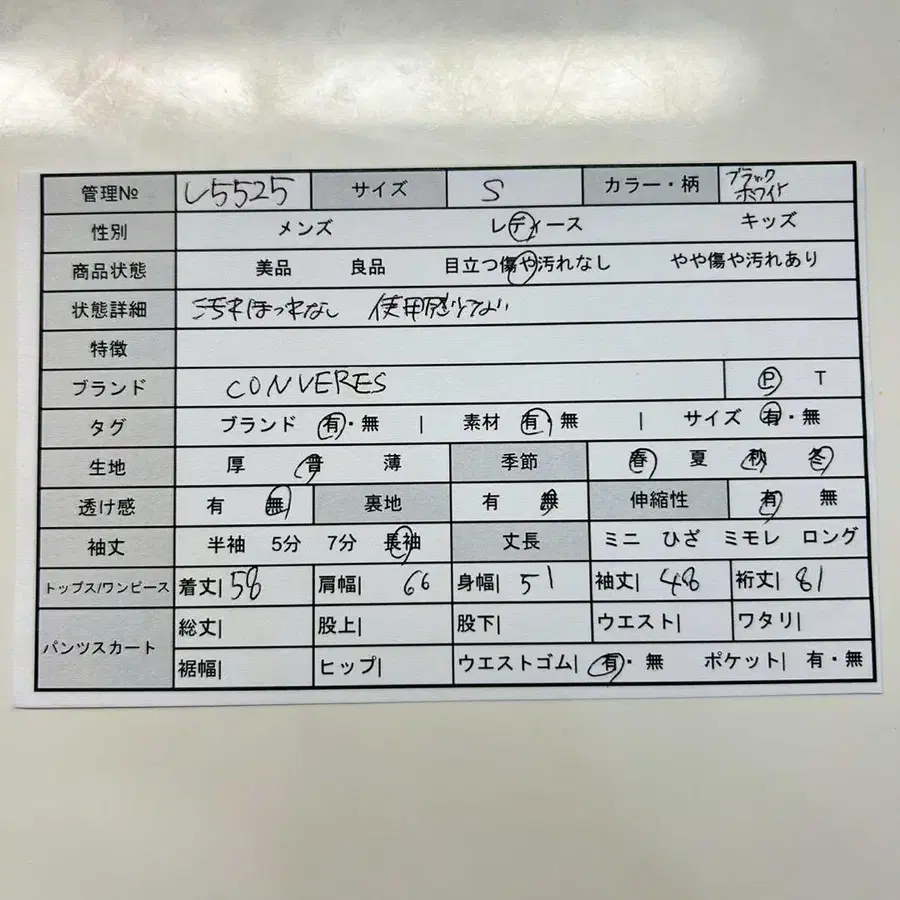 管理№ L5525 サイズ S カラー・柄 ブラック ホワイト
性別 メンズ レディース キッズ
商品状態 美品 良品 目立つ傷や汚れなし やや傷や汚れあり
状態詳細 汚れほつれなし 使用感少ない
特徴
ブランド CONVERES P T
タグ ブランド 有・無 | 素材 有・無 | サイズ 有・無
生地 厚 普 薄 季節 春 夏 秋 冬
透け感 有 無 裏地 有 無 伸縮性 有 無
袖丈 半袖 5分 7分 長袖 丈長 ミニ ひざ ミモレ ロング
トップス/ワンピース 着丈| 58 肩幅| 66 身幅| 51 袖丈| 48 裄丈| 81
パンツスカート 総丈| 股上| 股下| ウエスト| ワタリ|
裾幅| ヒップ| ウエストゴム| 有・無 ポケット| 有・無